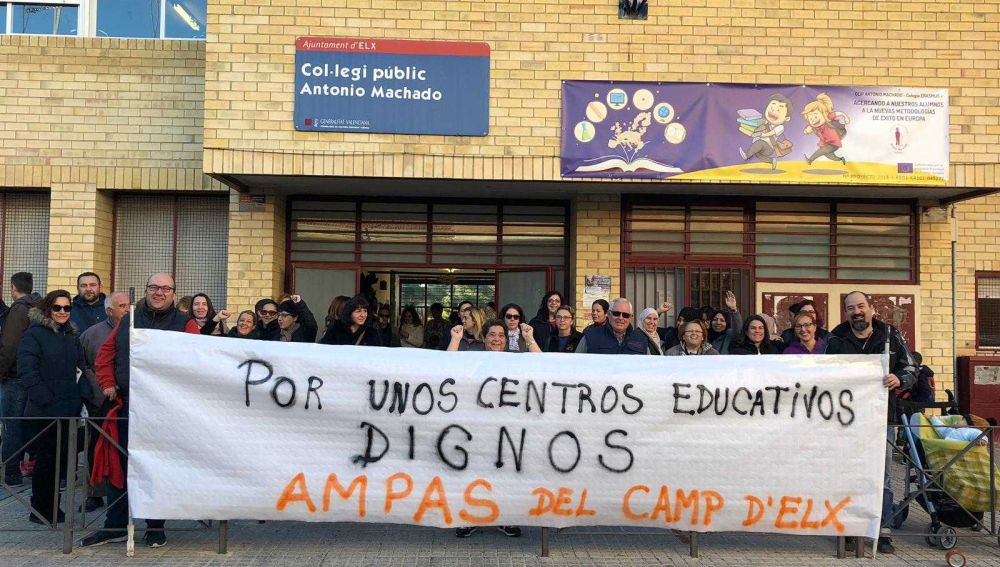 Ajuntament d'ELX
Col·legi públic
Antonio Machado
GENERALITAT VALENCIANA
CEIP ANTONIO MACHADO - Colegio ERASMUS +
ACERCANDO A NUESTROS ALUMNOS
A LA NUEVAS METODOLOGÍAS
DE ÉXITO EN EUROPA
POR UNOS CENTROS EDUCATIVOS
DIGNOS
AMPAS DEL CAMP D'ELX